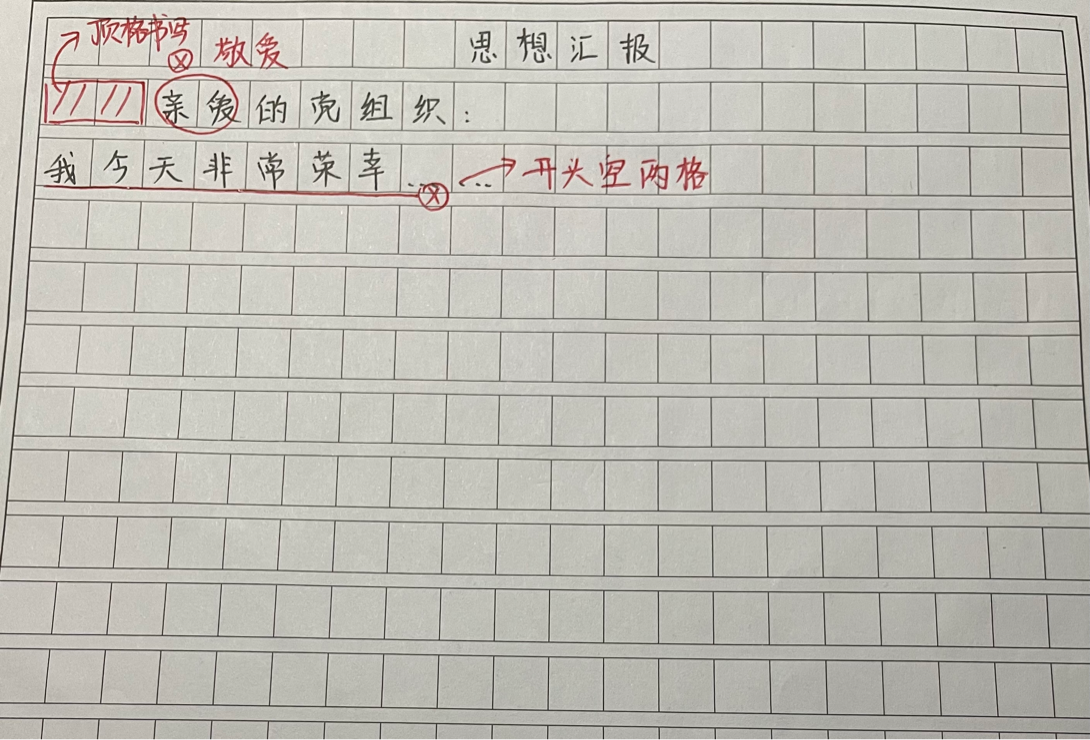 顶格书写 敬爱 思想汇报
亲爱的党组织:
我今天非常荣幸…… 开头空两格